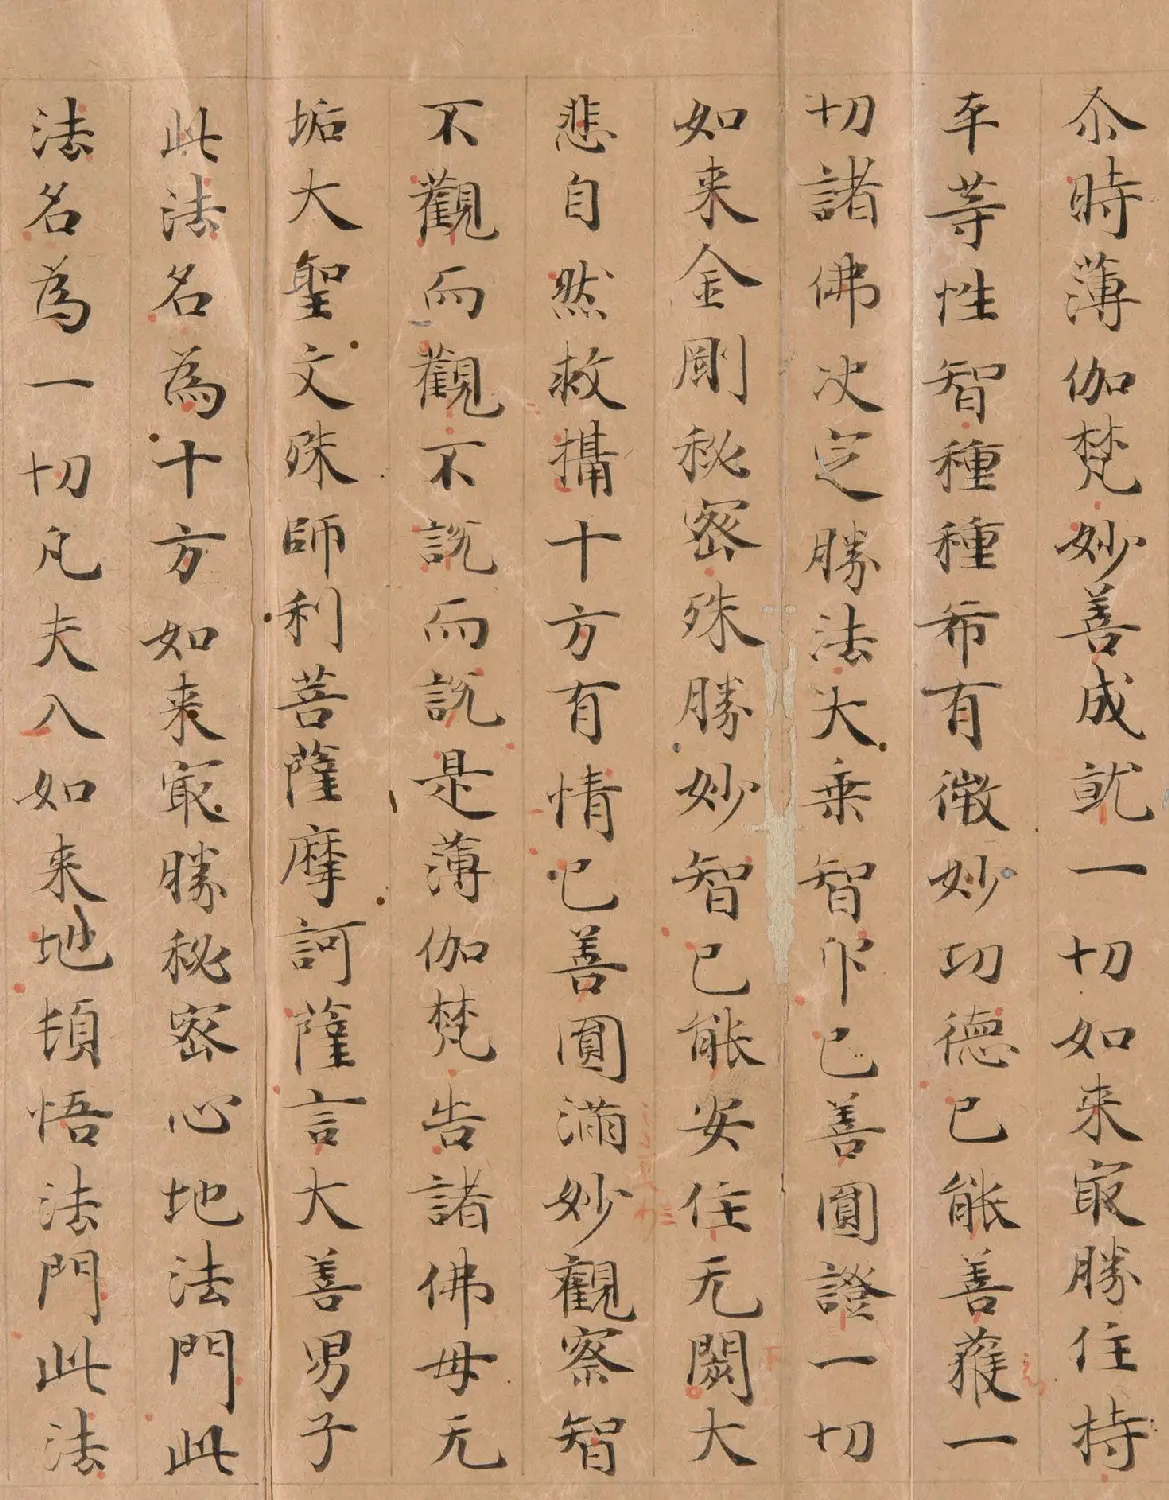 尒時薄伽梵妙善成就一切如来㝡勝住持
平等性智種種希有微妙功德已能善獲一
切諸佛决定勝法大乗智印已善圓證一切
如来金剛秘密殊勝妙智已能安住无閡大
悲自然救攝十方有情已善圓滿妙觀察智
不觀而觀不說而說是薄伽梵告諸佛母无
垢大聖文殊師利菩薩摩訶薩言大善男子
此法名為十方如来㝡勝秘密心地法門此
法名為一切凡夫入如来地頓悟法門此法